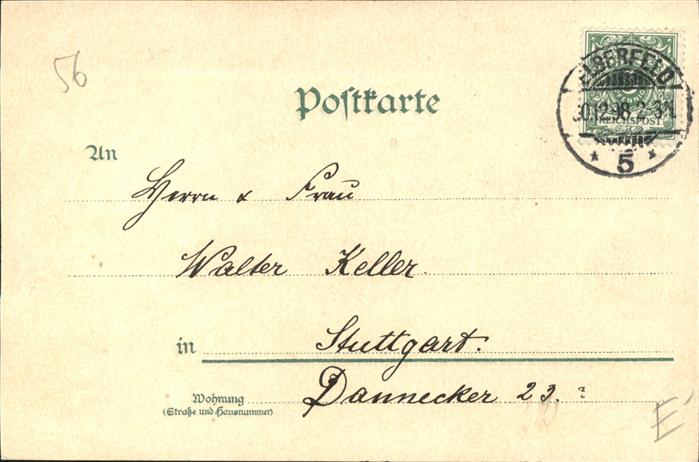 56
Postkarte
ELBERFELD
30.12.98. 2-3N
REICHSPOST
* 5 *
An
Herrn & Frau
Walter Keller.
in Stuttgart.
Wohnung
(Straße und Hausnummer)
Dannecker 23. ?
E'